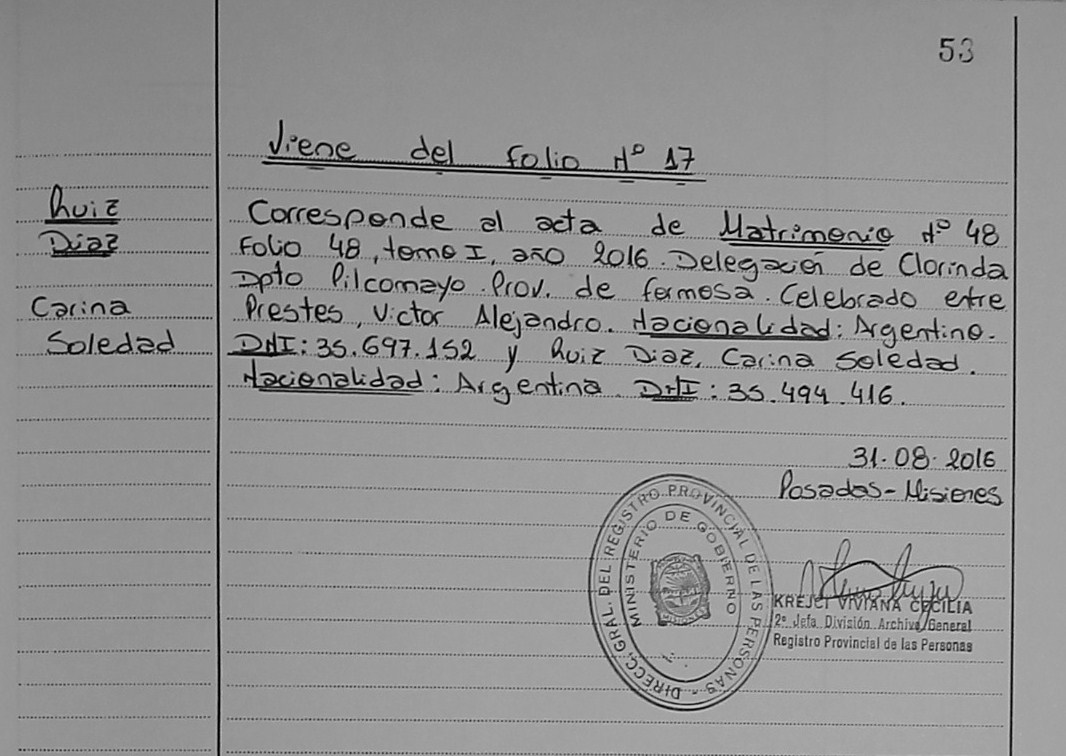 53
Viene del Folio Nº 17
Ruiz
Diaz
Carina
Soledad
Corresponde al acta de Matrimonio Nº 48
Folio 48, tomo I, año 2016. Delegación de Clorinda
Dpto Pilcomayo. Prov. de formosa. Celebrado entre
Prestes, Victor Alejandro. Nacionalidad: Argentino.
DNI: 35.697.152 y Ruiz Diaz, Carina Soledad.
Nacionalidad: Argentina. DNI: 35.494.416.
31.08.2016
Posadas-Misiones
DIRECC. GRAL. DEL REGISTRO PROVINCIAL DE LAS PERSONAS -
MINISTERIO DE GOBIERNO
KREJCI VIVIANA CECILIA
2º Jefa División Archivo General
Registro Provincial de las Personas